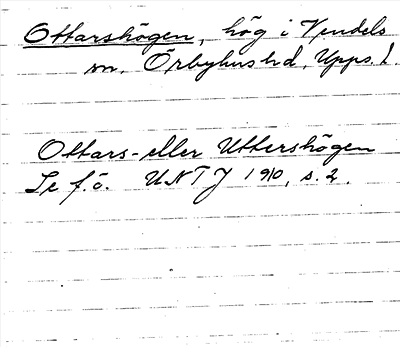 Ottarshögen, hög i Vendels
sn, Örbyhus hd, Upps. l.
Ottars- eller Uttershögen
Se f.ö. UNT J 1910, s. 2.